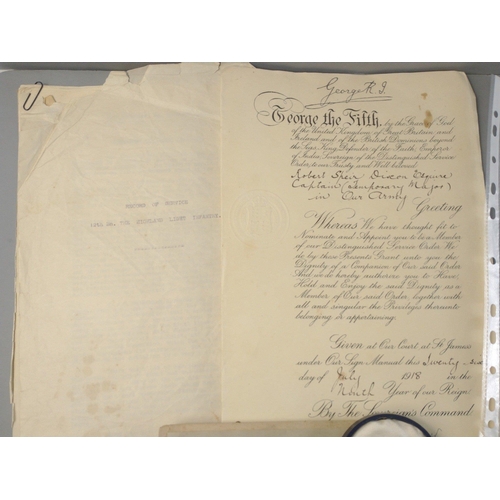 RECORD OF SERVICE
HIGHLAND LIGHT INFANTRY.
George R.I.
George the Fifth, by the Grace of God
of the United Kingdom of Great Britain and
Ireland and of the British Dominions beyond
the Seas King, Defender of the Faith, Emperor
of India, Sovereign of the Distinguished Service
Order, to our Trusty and Well beloved
Robert Speir Dixon Esquire
Captain (temporary Major)
in Our Army
Greeting
Whereas We have thought fit to
Nominate and Appoint you to be a Member
of our Distinguished Service Order We
do by these Presents Grant unto you the
Dignity of a Companion of Our said Order
And we do hereby authorize you to Have,
Hold and Enjoy the said Dignity as a
Member of Our said Order, together with
all and singular the Privileges thereunto
belonging or appertaining.
Given at Our Court at St James's
under Our Sign Manual this Twenty-
day of July 1918 in the
Ninth Year of our Reign.
By The Sovereign's Command